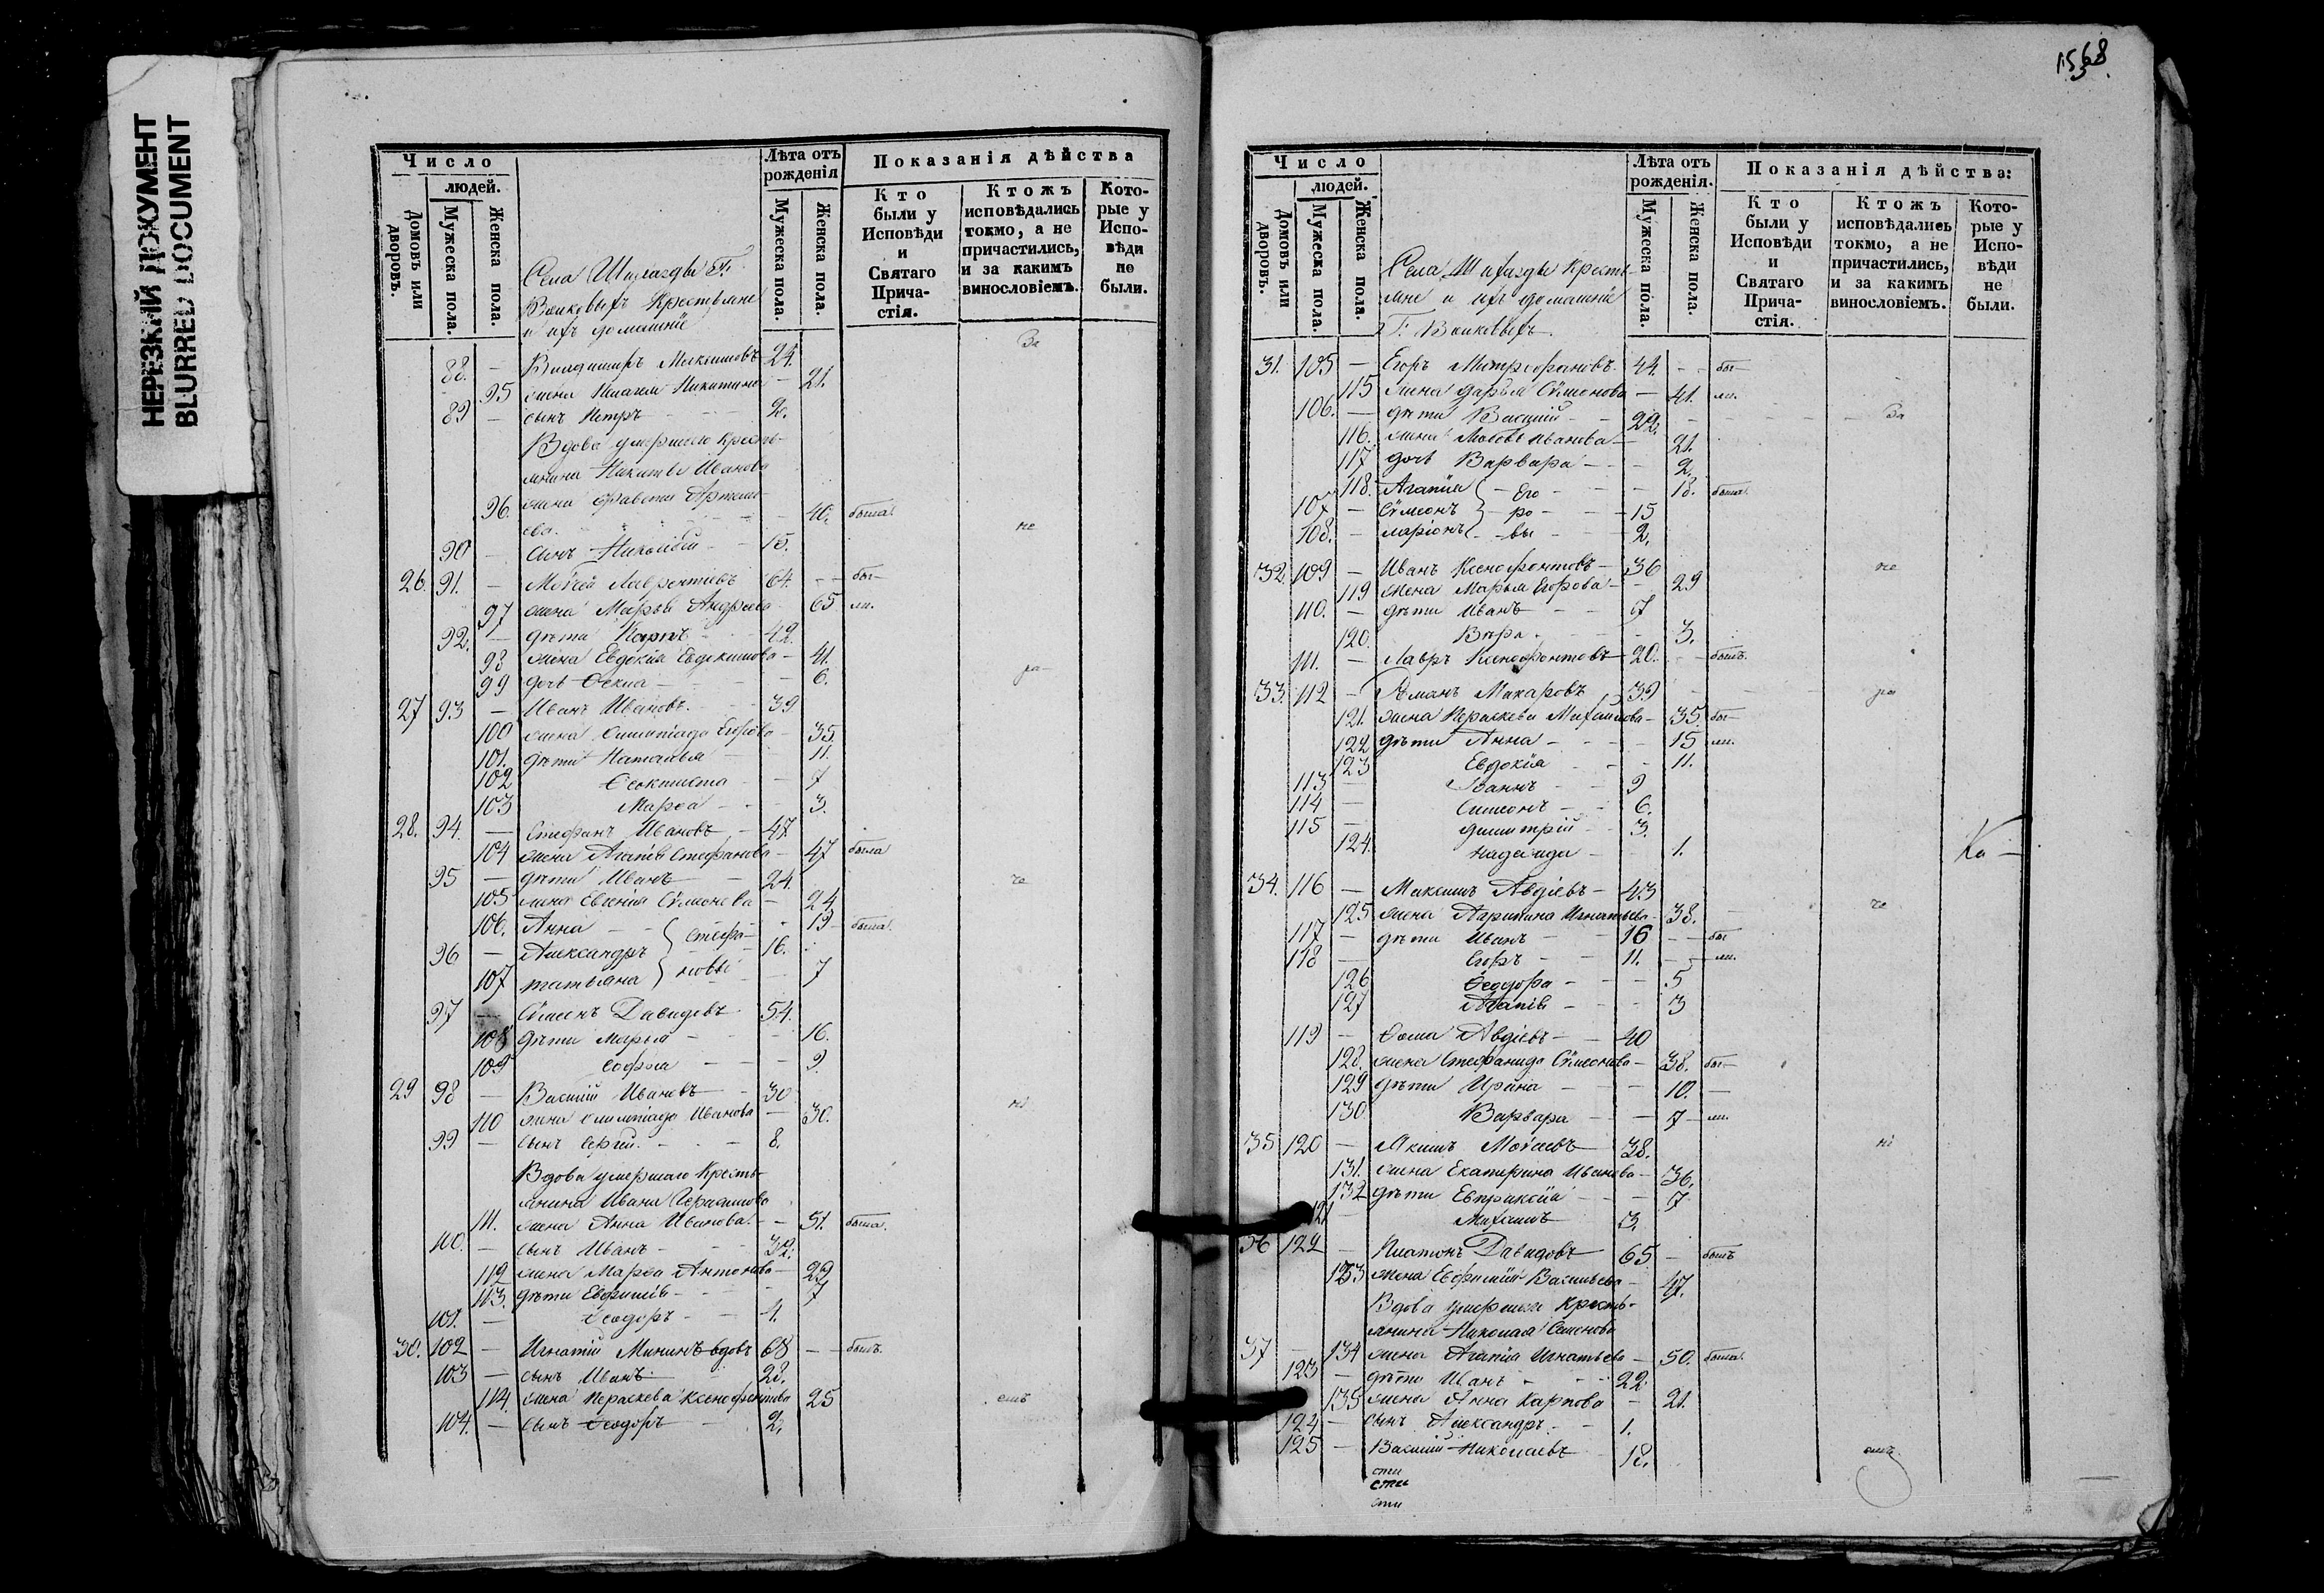 НЕРЕЗКИЙ ДОКУМЕНТ
BLURRED DOCUMENT
Число
людей.
Домовъ или дворовъ.
Мужеска пола.
Женска пола.
Лѣта отъ рожденія
Мужеска пола.
Женска пола.
Показанія дѣйства
Кто были у Исповѣди и Святаго Прича-стія.
Ктожъ исповѣдались токмо, а не причастились, и за какимъ винословіемъ.
Кото-рые у Испо-вѣди не были.
Села Г.
Крестьяне
и ихъ домашніе
За
88. — Владимиръ Максимовъ 24.
95 жена Никитина — 21.
89 — сынъ Петръ 2.
Вдова умершаго кресть-
янина Никиты Иванова
96. жена Артемь-
ева. — 40. была.
не
90 — сынъ Николай 15.
26. 91. — Моѵсей Лаврентіевъ 64. — бы—
97 жена Марѳа Андреева 65 ли.
92. — дѣти Карпъ 42.
98 жена Евдокія Евдокимова — 41.
ра—
99 дочь Ѳекла — 6.
27 93 — Иванъ Ивановъ. 39
100 жена Олимпіада Егорова — 35.
101. дѣти Наталья — 11.
102 Ѳеоктиста — 7
103 Марѳа — 3.
28. 94. — Стефанъ Ивановъ — 47
104 жена Агапія Стефанова — 47 была
95 — дѣти Иванъ — 24.
че
105 жена Евгенія Сѵмеонова — 24
106. Анна — Стефа- 19 — была.
96 — Александръ 16.
107 татьяна новы 7
97 — Сѵмеонъ Давидовъ 54.
108 дѣти Марья — 16.
109 Софья — 9.
29 98 — Василій Ивановъ — 30
ні
110 жена Олимпіада Иванова — 30.
99 — сынъ Сергій. — 8.
Вдова умершаго Кресть-
янина Ивана Герасимова
111. жена Анна Иванова. — 51. была.
100. — сынъ Иванъ — 32.
112 жена Марѳа Антонова — 29
113. дѣти Евфимія — 7
101. — Ѳеодоръ — 4.
30. 102 — Игнатій Мининъ вдовъ 68 — былъ.
103 — сынъ Иванъ 28.
114. жена Параскева Ксенофонтова 25
емъ
104. — сынъ Ѳеодоръ 2.
1568
Число
людей.
Домовъ или дворовъ.
Мужеска пола.
Женска пола.
Лѣта отъ рожденія.
Мужеска пола.
Женска пола.
Показанія дѣйства:
Кто были у Исповѣди и Святаго Прича-стія.
Ктожъ исповѣдались токмо, а не причастились, и за какимъ винословіемъ.
Кото-рые у Испо-вѣди не были.
Села Кресть-
яне и ихъ домашніе
Г.
31. 105 — Егоръ Митрофановъ. 44. — бы—
115 жена Дарья Сѵмеонова — 41. ли.
106. — дѣти Василій — 22. За
116. жена Любовь Иванова — 21.
117 дочь Варвара — 2.
118. Агапія — Его — 18. была.
107 — Сѵмеонъ — ро — 15
108. — Ларіонъ — вы 2.
32. 109 — Иванъ Ксенофонтовъ — 36
не
119 жена Марья Егорова — 29
110. — дѣти Иванъ — 7
120. Вѣра — 3.
111. — Лавръ Ксенофонтовъ 20. — былъ.
33. 112 — Романъ Макаровъ 39
ра
121. жена Параскева Михаилова — 35. бы—
122 дѣти Анна — 15 ли.
123 Евдокія — 11.
113 — Іоаннъ — 9
114 — Симеонъ — 6.
115 — Димитрій — 3.
124. Надежда — 1.
Ка —
34. 116 — Максимъ Авдіевъ — 43
че
125 жена Агрипина Игнатьева — 38.
117 — дѣти Иванъ — 16 — бы
118 — Егоръ — 11. — ли.
126 Ѳеодора — 5
127 Агапія — 3
119 — Ѳома Авдіевъ — 40
128. жена Стефанида Сѵмеонова — 38. бы—
129 дѣти Ирина — 10. —
130 Варвара — 7 — ли.
35 120 — Якимъ Моѵсеевъ — 38.
ні
131. жена Екатерина Иванова — 36.
132 дѣти Евпраксія — 7
121 — Михаилъ 3.
36 122 — Платонъ Давидовъ 65 — былъ
133 жена Евфимія Васильева — 47.
Вдова умершаго Кресть-
янина Николая Семенова
37 — 134 жена Агапія Игнатьева — 50. была.
123 — дѣти Иванъ — 22
135 жена Анна Карпова — 21.
124 — сынъ Александръ. — 1.
125 — Василій Николаевъ 18.
емъ.